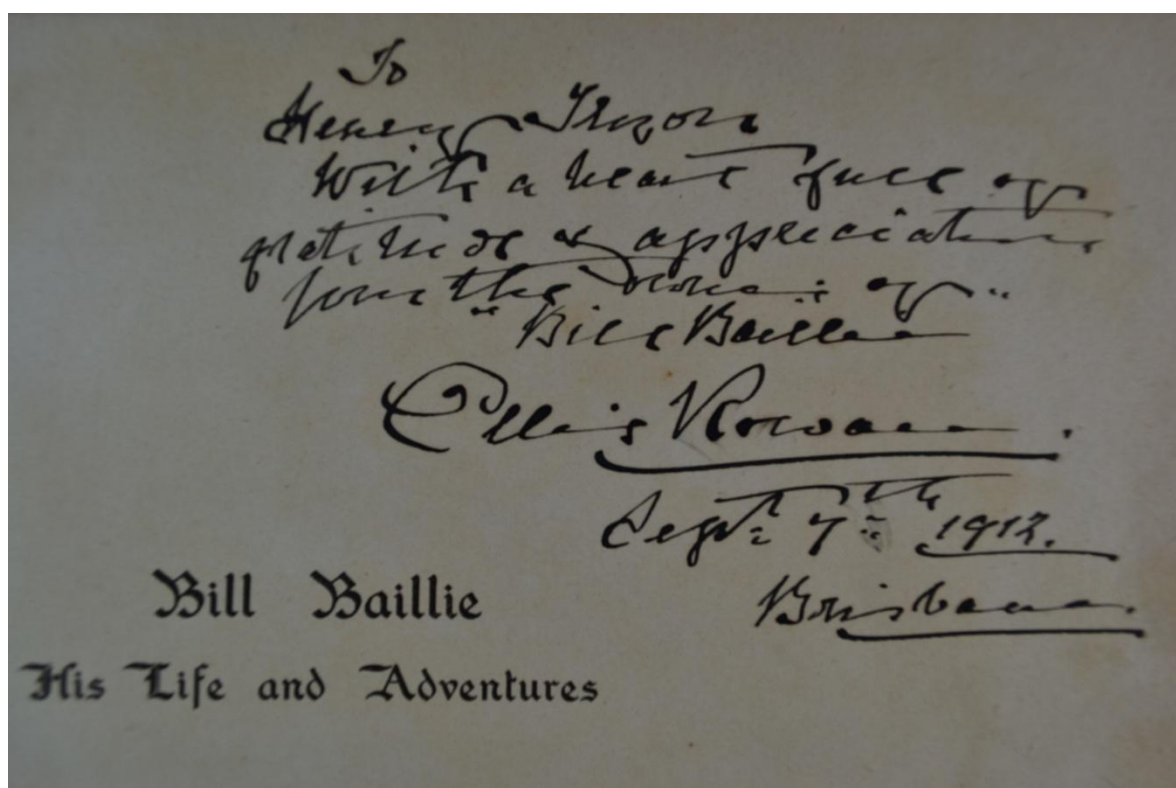 To
Henry Tryon
With a heart full of
gratitude & appreciation
from the of
"Bill Baillie"
Ellis Rowan.
Sept: 7th 1912.
Brisbane.
Bill Baillie
His Life and Adventures